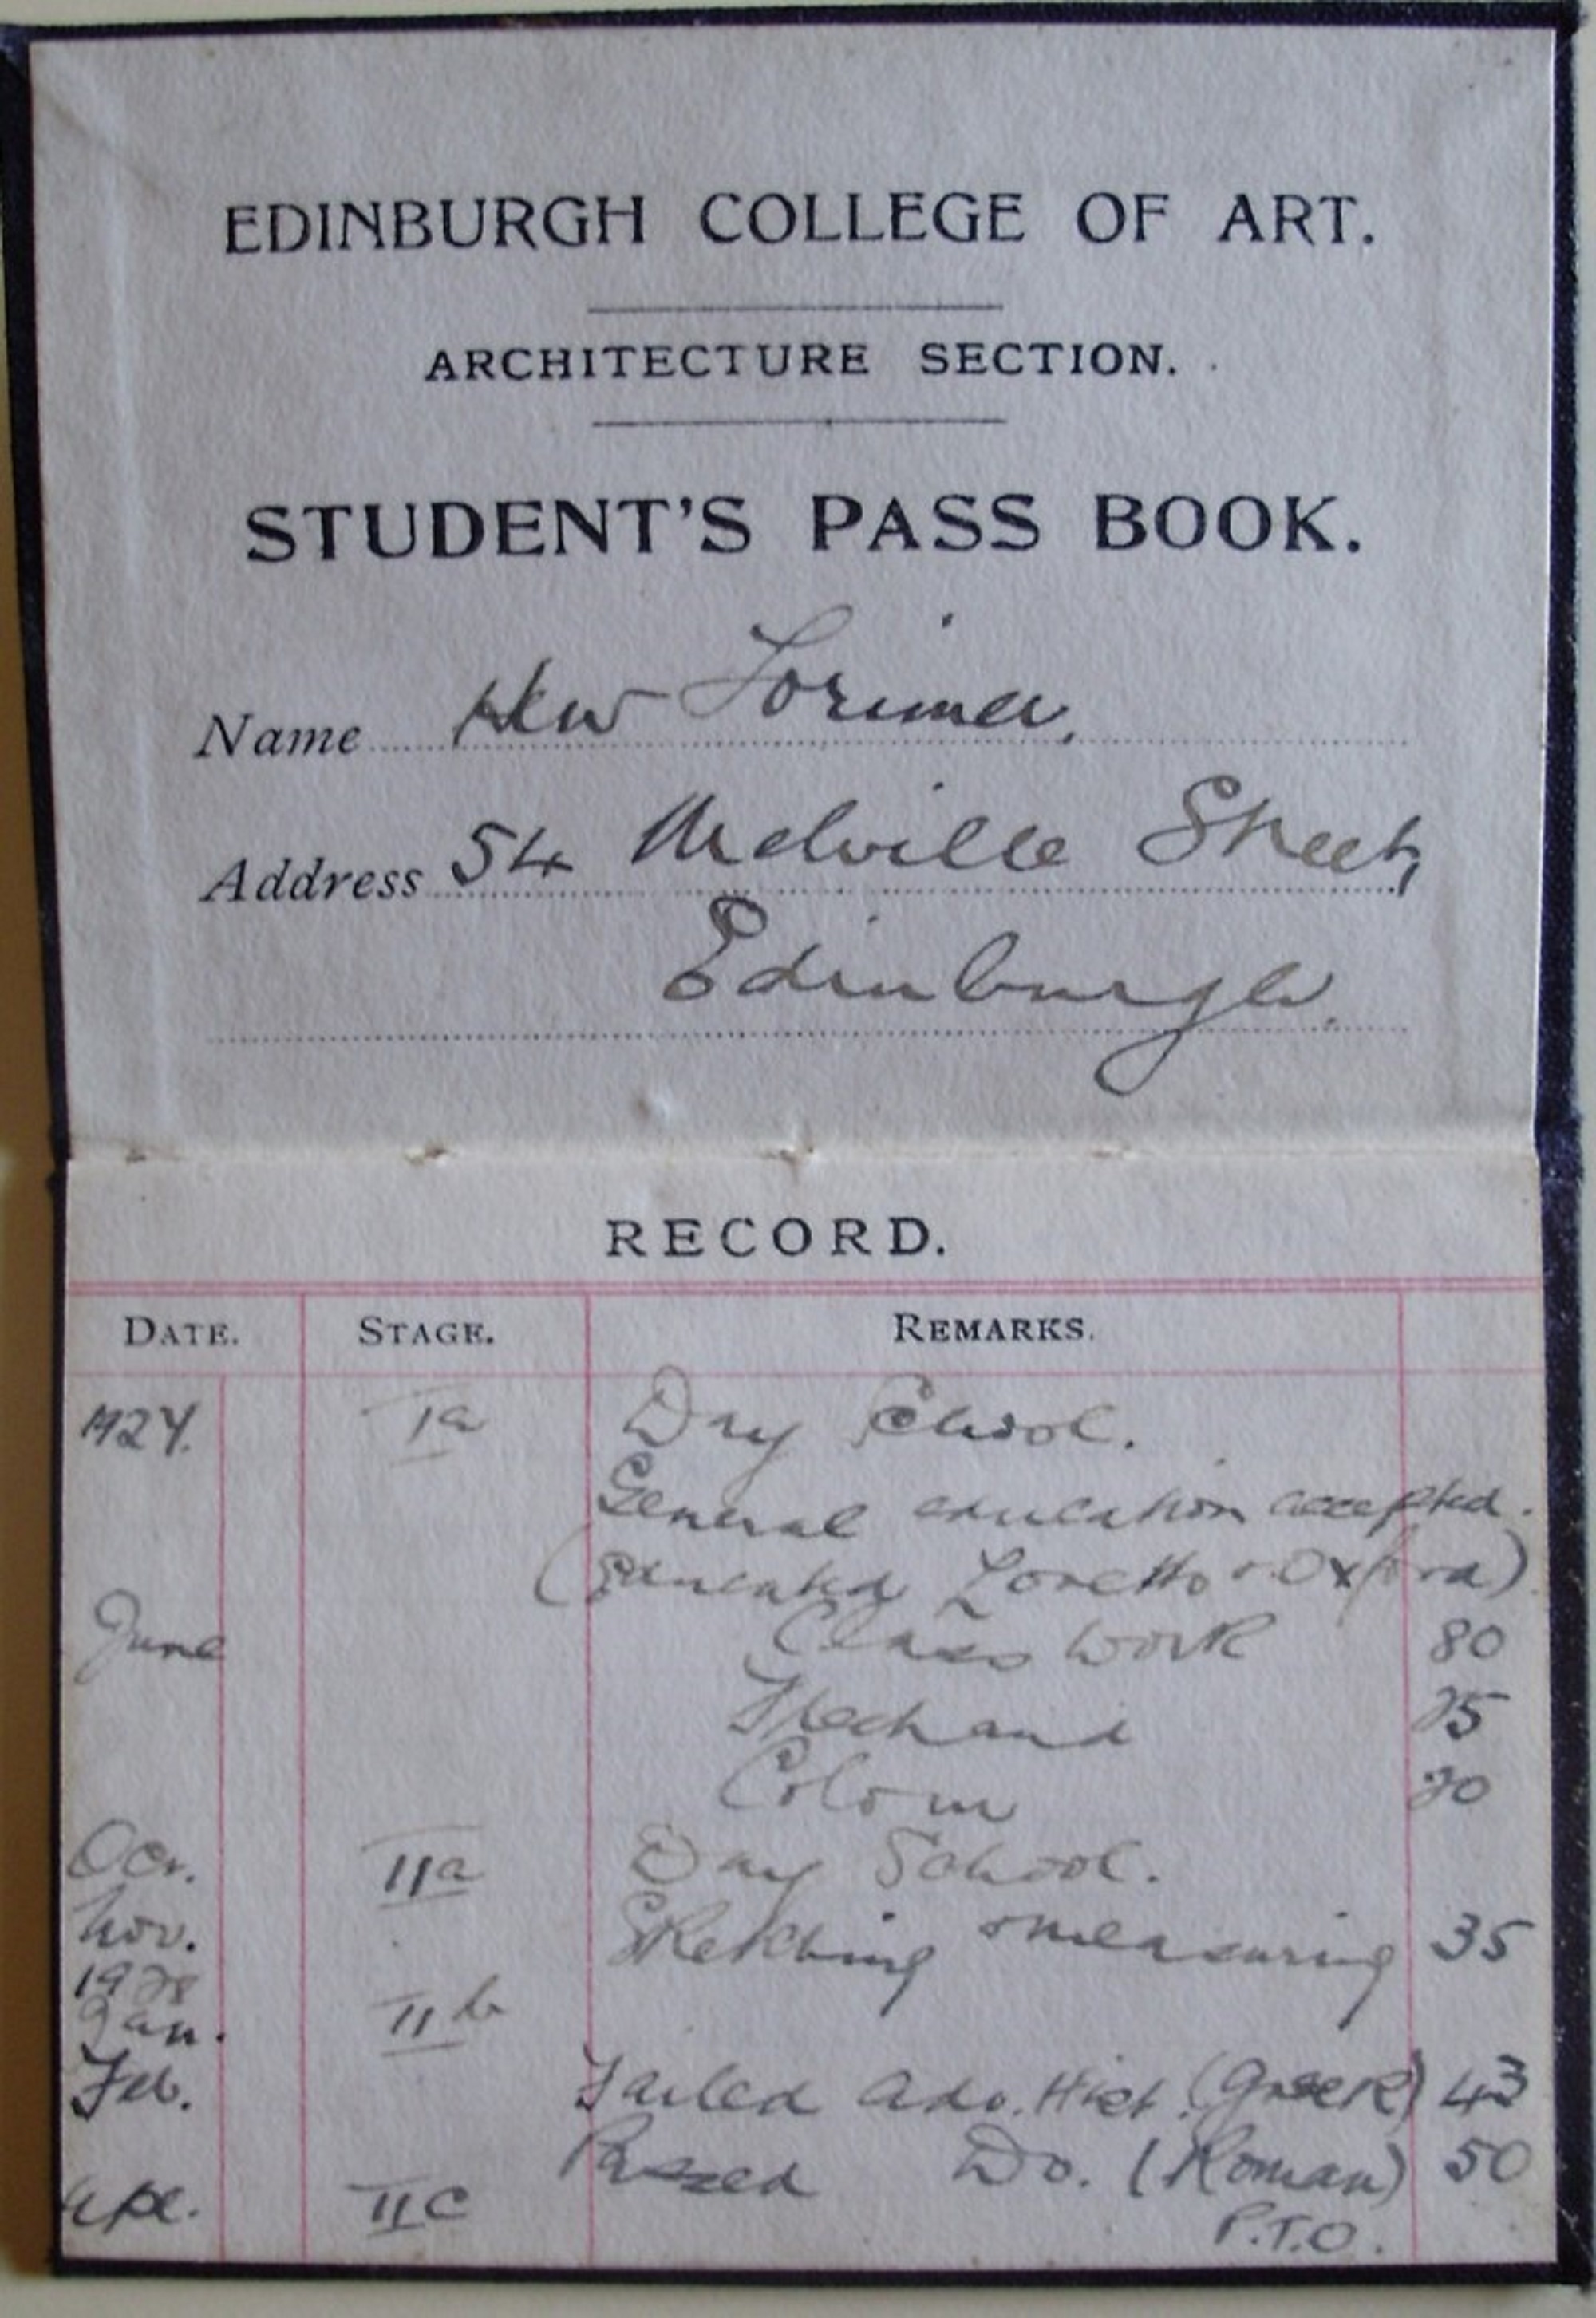 EDINBURGH COLLEGE OF ART.
ARCHITECTURE SECTION.
STUDENT'S PASS BOOK.
Name Hew Lorimer,
Address 54 Melville Street,
Edinburgh.
RECORD.
DATE. STAGE. REMARKS.
Ia Day School.
General education accepted.
(Educated Loretto & Oxford)
June Class work 80
Freehand
Colour
Oct. IIa Day School.
Nov. Sketching & measuring 35
1928
Jan. IIb
Feb. Failed Adv. Hist. (Greek) 43
Passed Do. (Roman) 50
Apl. IIc
P.T.O.